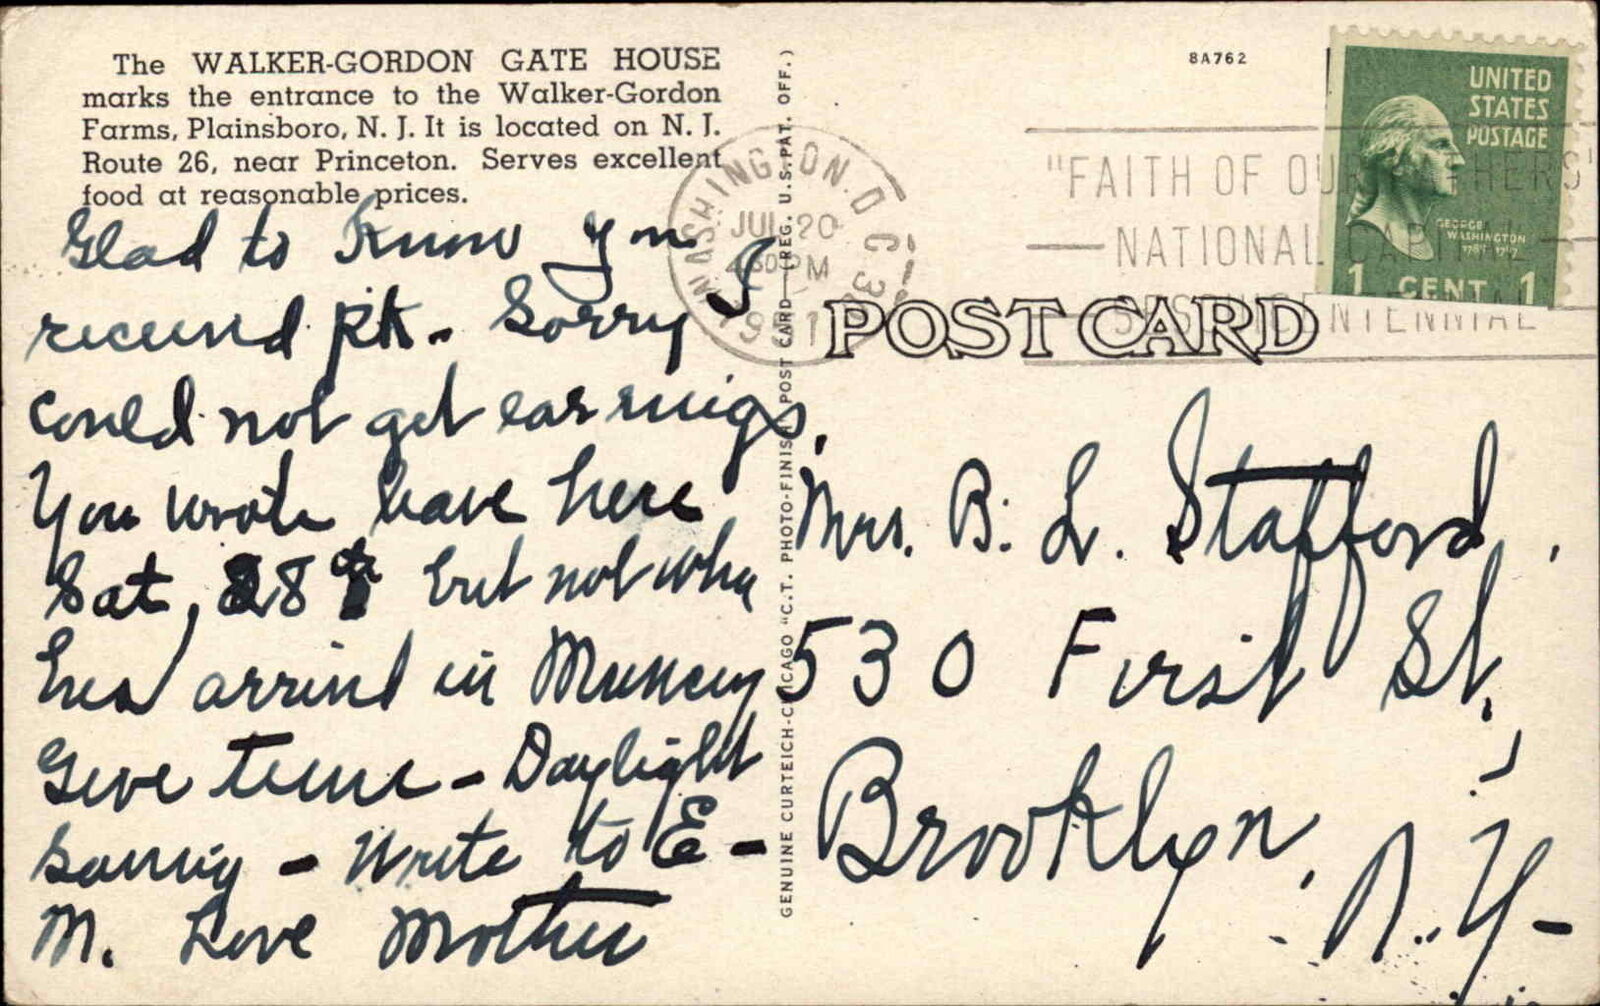 The WALKER-GORDON GATE HOUSE
marks the entrance to the Walker-Gordon
Farms, Plainsboro, N. J. It is located on N. J.
Route 26, near Princeton. Serves excellent
food at reasonable prices.
Glad to know you
received pkt. Sorry I
could not get earrings.
You wrote leave here
Sat, 28th but not when
arrind in Muncey
Give time - Daylight
Saving - Write to E-
M. Love Mother
GENUINE CURTEICH-CHICAGO "C.T. PHOTO-FINISH" POST CARD—(REG. U.S. PAT. OFF.)
WASHINGTON. D.C.
JUL 20
4 30 PM
1951
8A762
"FAITH OF OUR FATHERS"
NATIONAL CAPITAL
SESQUICENTENNIAL
UNITED
STATES
POSTAGE
GEORGE
WASHINGTON
1 CENT 1
POST CARD
Mrs. B. L. Stafford,
530 First St,
Brooklyn,
N.Y-